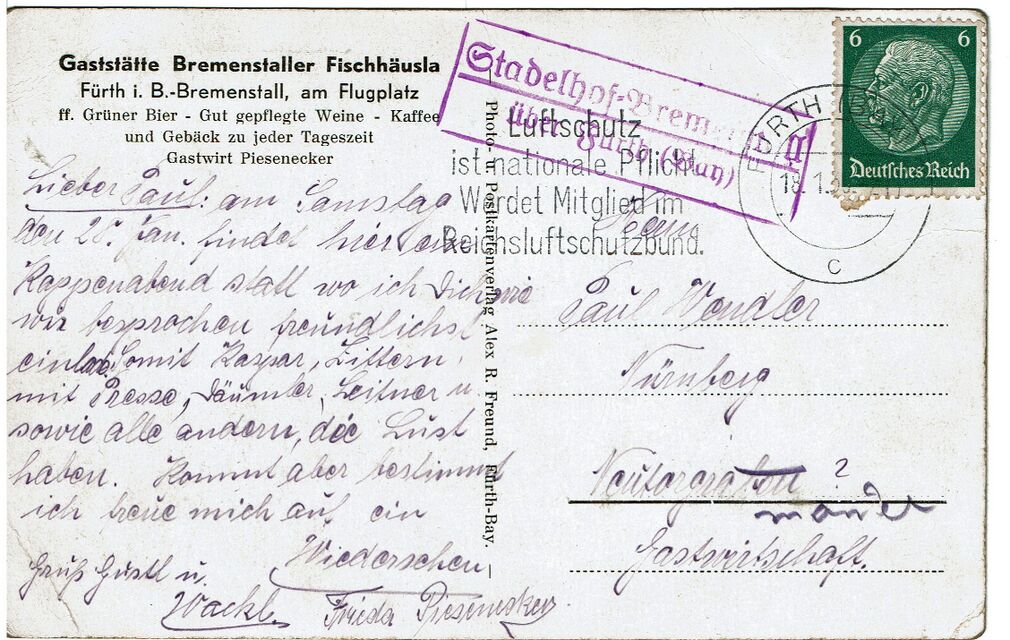 Gaststätte Bremenstaller Fischhäusla
Fürth i. B.-Bremenstall, am Flugplatz
ff. Grüner Bier - Gut gepflegte Weine - Kaffee
und Gebäck zu jeder Tageszeit
Gastwirt Piesenecker
Lieber Paul! am Samstag
den 28. Jan. findet hier ein
Kappenabend statt wo ich Dich wie
wir besprochen freundlichst
einlad. Somit Kaspar, Zittern,
mit Presse, Däumler, Leitner u.
sowie alle andern, die Lust
haben. Kommt aber bestimmt
ich freue mich auf ein
Wiedersehen
Gruß Gustl u.
Wackl. Frieda Piesenecker
Photo- u. Postkartenverlag Alex R. Freund, Fürth-Bay.
Stadelhof-Bremenstall
über Fürth (Bay)
Luftschutz
ist nationale Pflicht
Werdet Mitglied im
Reichsluftschutzbund.
FÜRTH (BAY)
18.1.
C
6 6
Deutsches Reich
Herrn
Paul Wendler
Nürnberg
Neutorgraben ?
Gastwirtschaft.